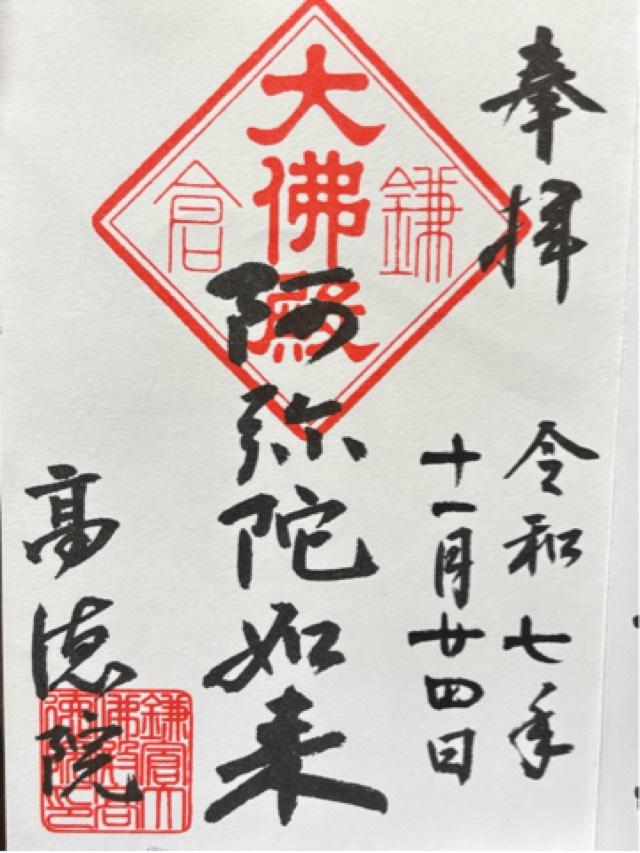 奉拝
令和七年
十一月廿四日
大佛殿
鎌倉
阿弥陀如来
高徳院
鎌倉大
佛殿高
徳院印